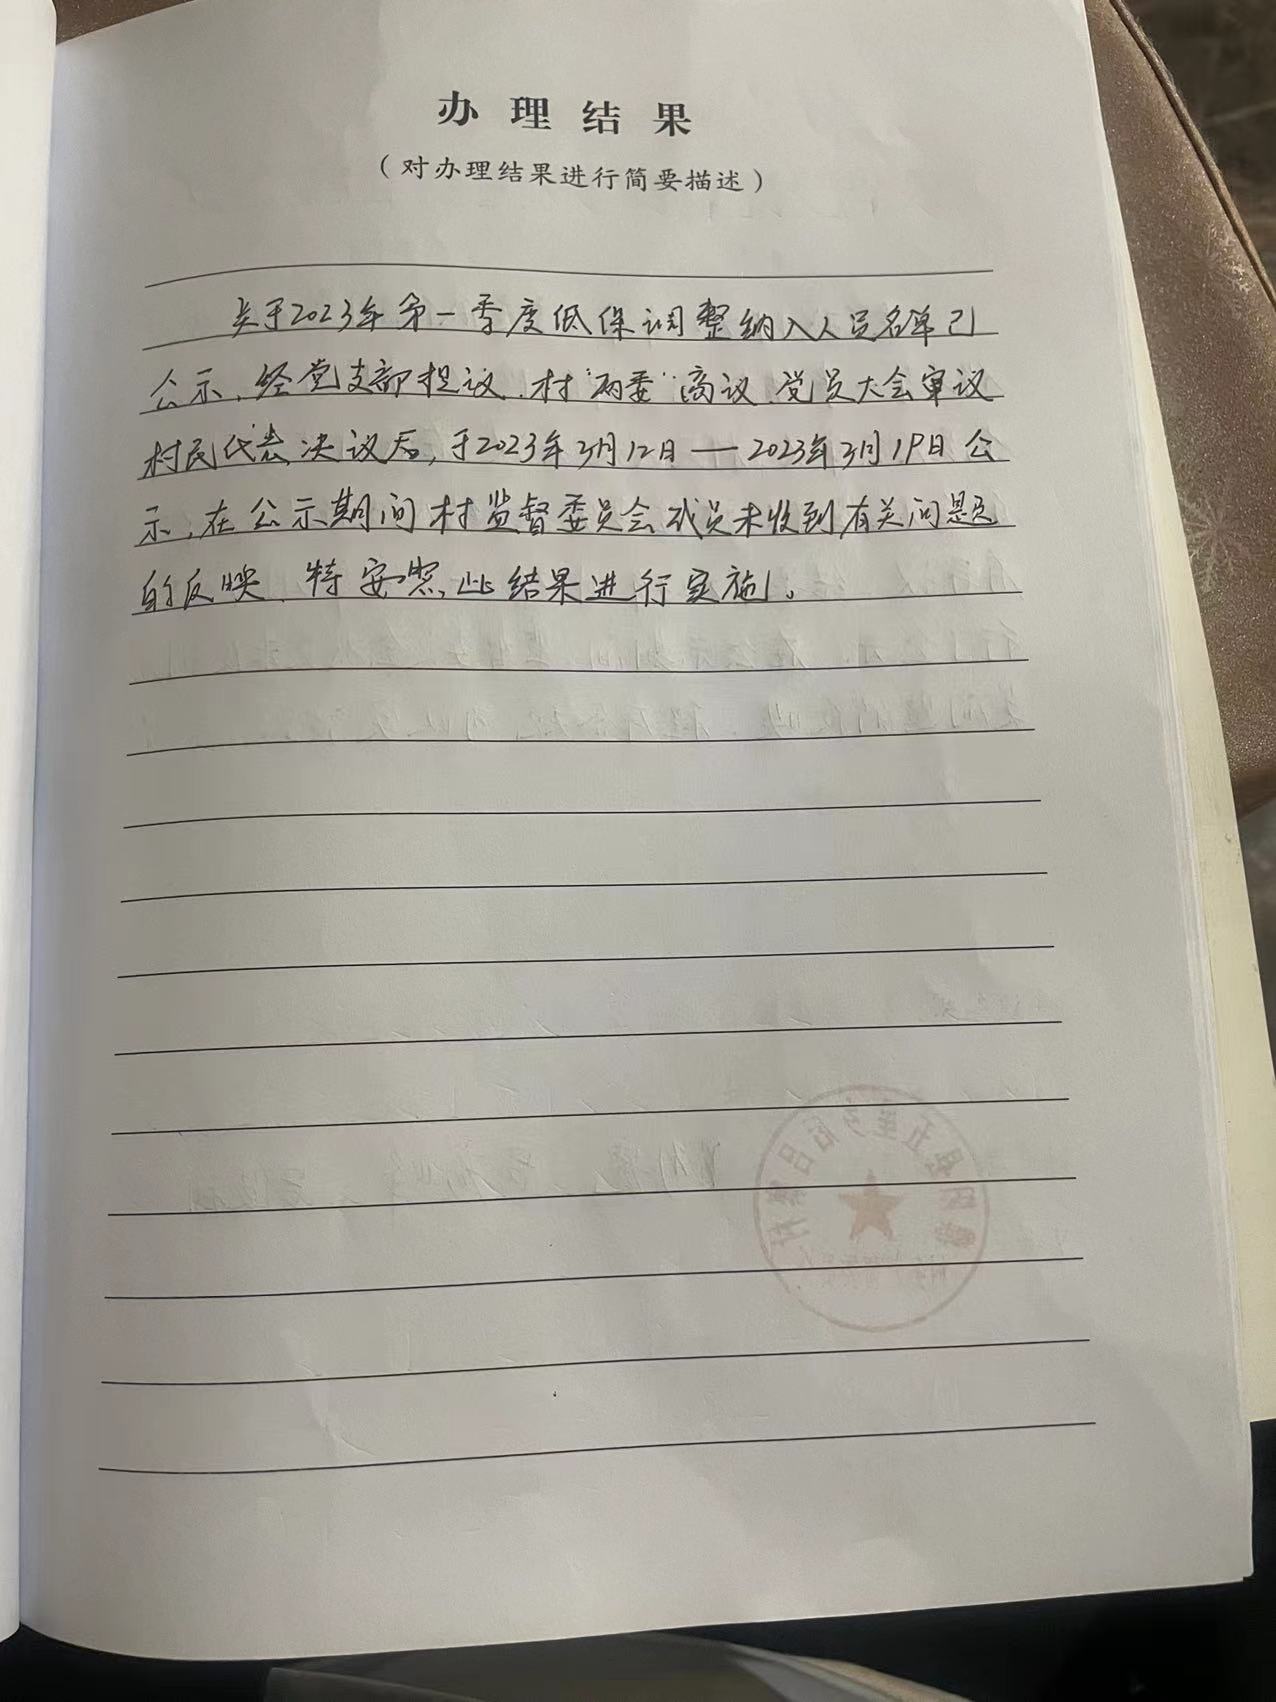 办理结果
（对办理结果进行简要描述）
关于2023年第一季度低保调整纳入人员名单已
公示，经党支部提议、村“两委”商议、党员大会审议
村民代表决议后，于2023年3月12日—2023年3月19日公
示，在公示期间村监督委员会成员未收到有关问题
的反映，特安照此结果进行实施。